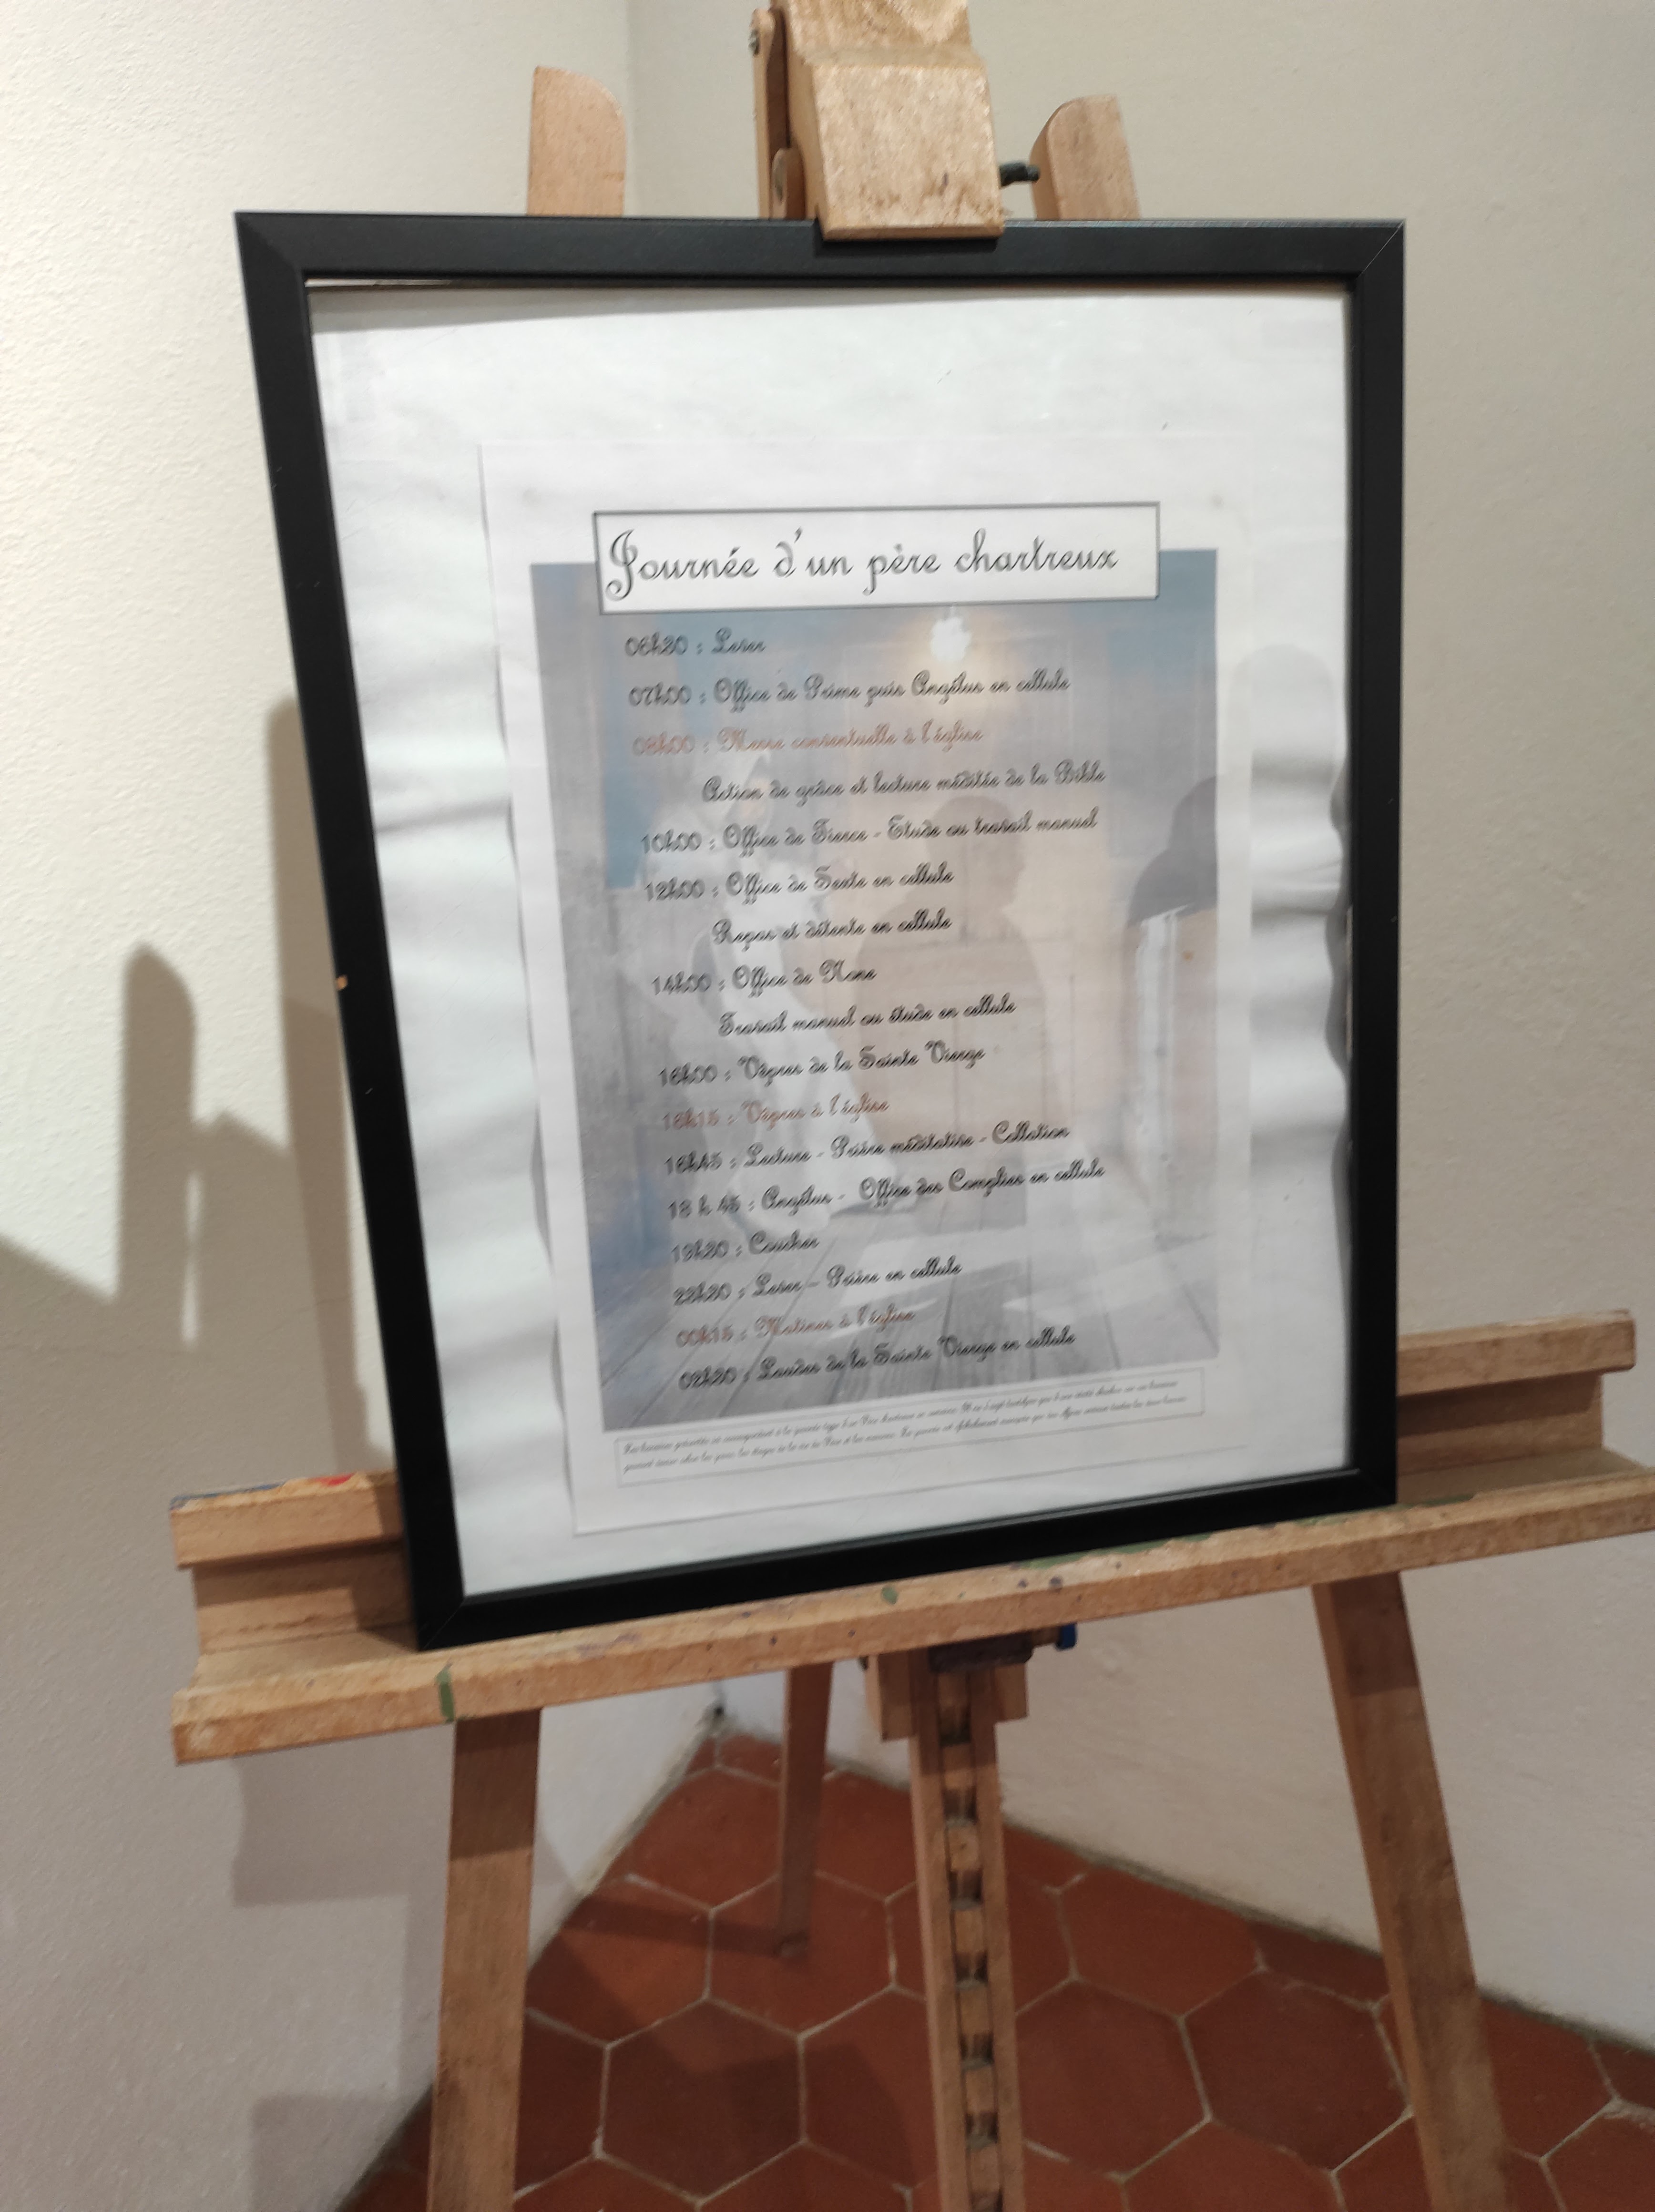 Journée d'un père chartreux
06h30 : Lever
07h00 : Office de Prime puis Angélus en cellule
08h00 : Messe conventuelle à l'église
Action de grâce et lecture méditée de la Bible
10h00 : Office de Tierce - Etude ou travail manuel
12h00 : Office de Sexte en cellule
Repas et détente en cellule
14h00 : Office de None
Travail manuel ou étude en cellule
16h00 : Vêpres de la Sainte Vierge
16h15 : Vêpres à l'église
16h45 : Lecture - Prière méditative - Collation
18 h 45 : Angélus - Office des Complies en cellule
19h30 : Coucher
23h30 : Lever - Prière en cellule
00h15 : Matines à l'église
02h30 : Laudes de la Sainte Vierge en cellule